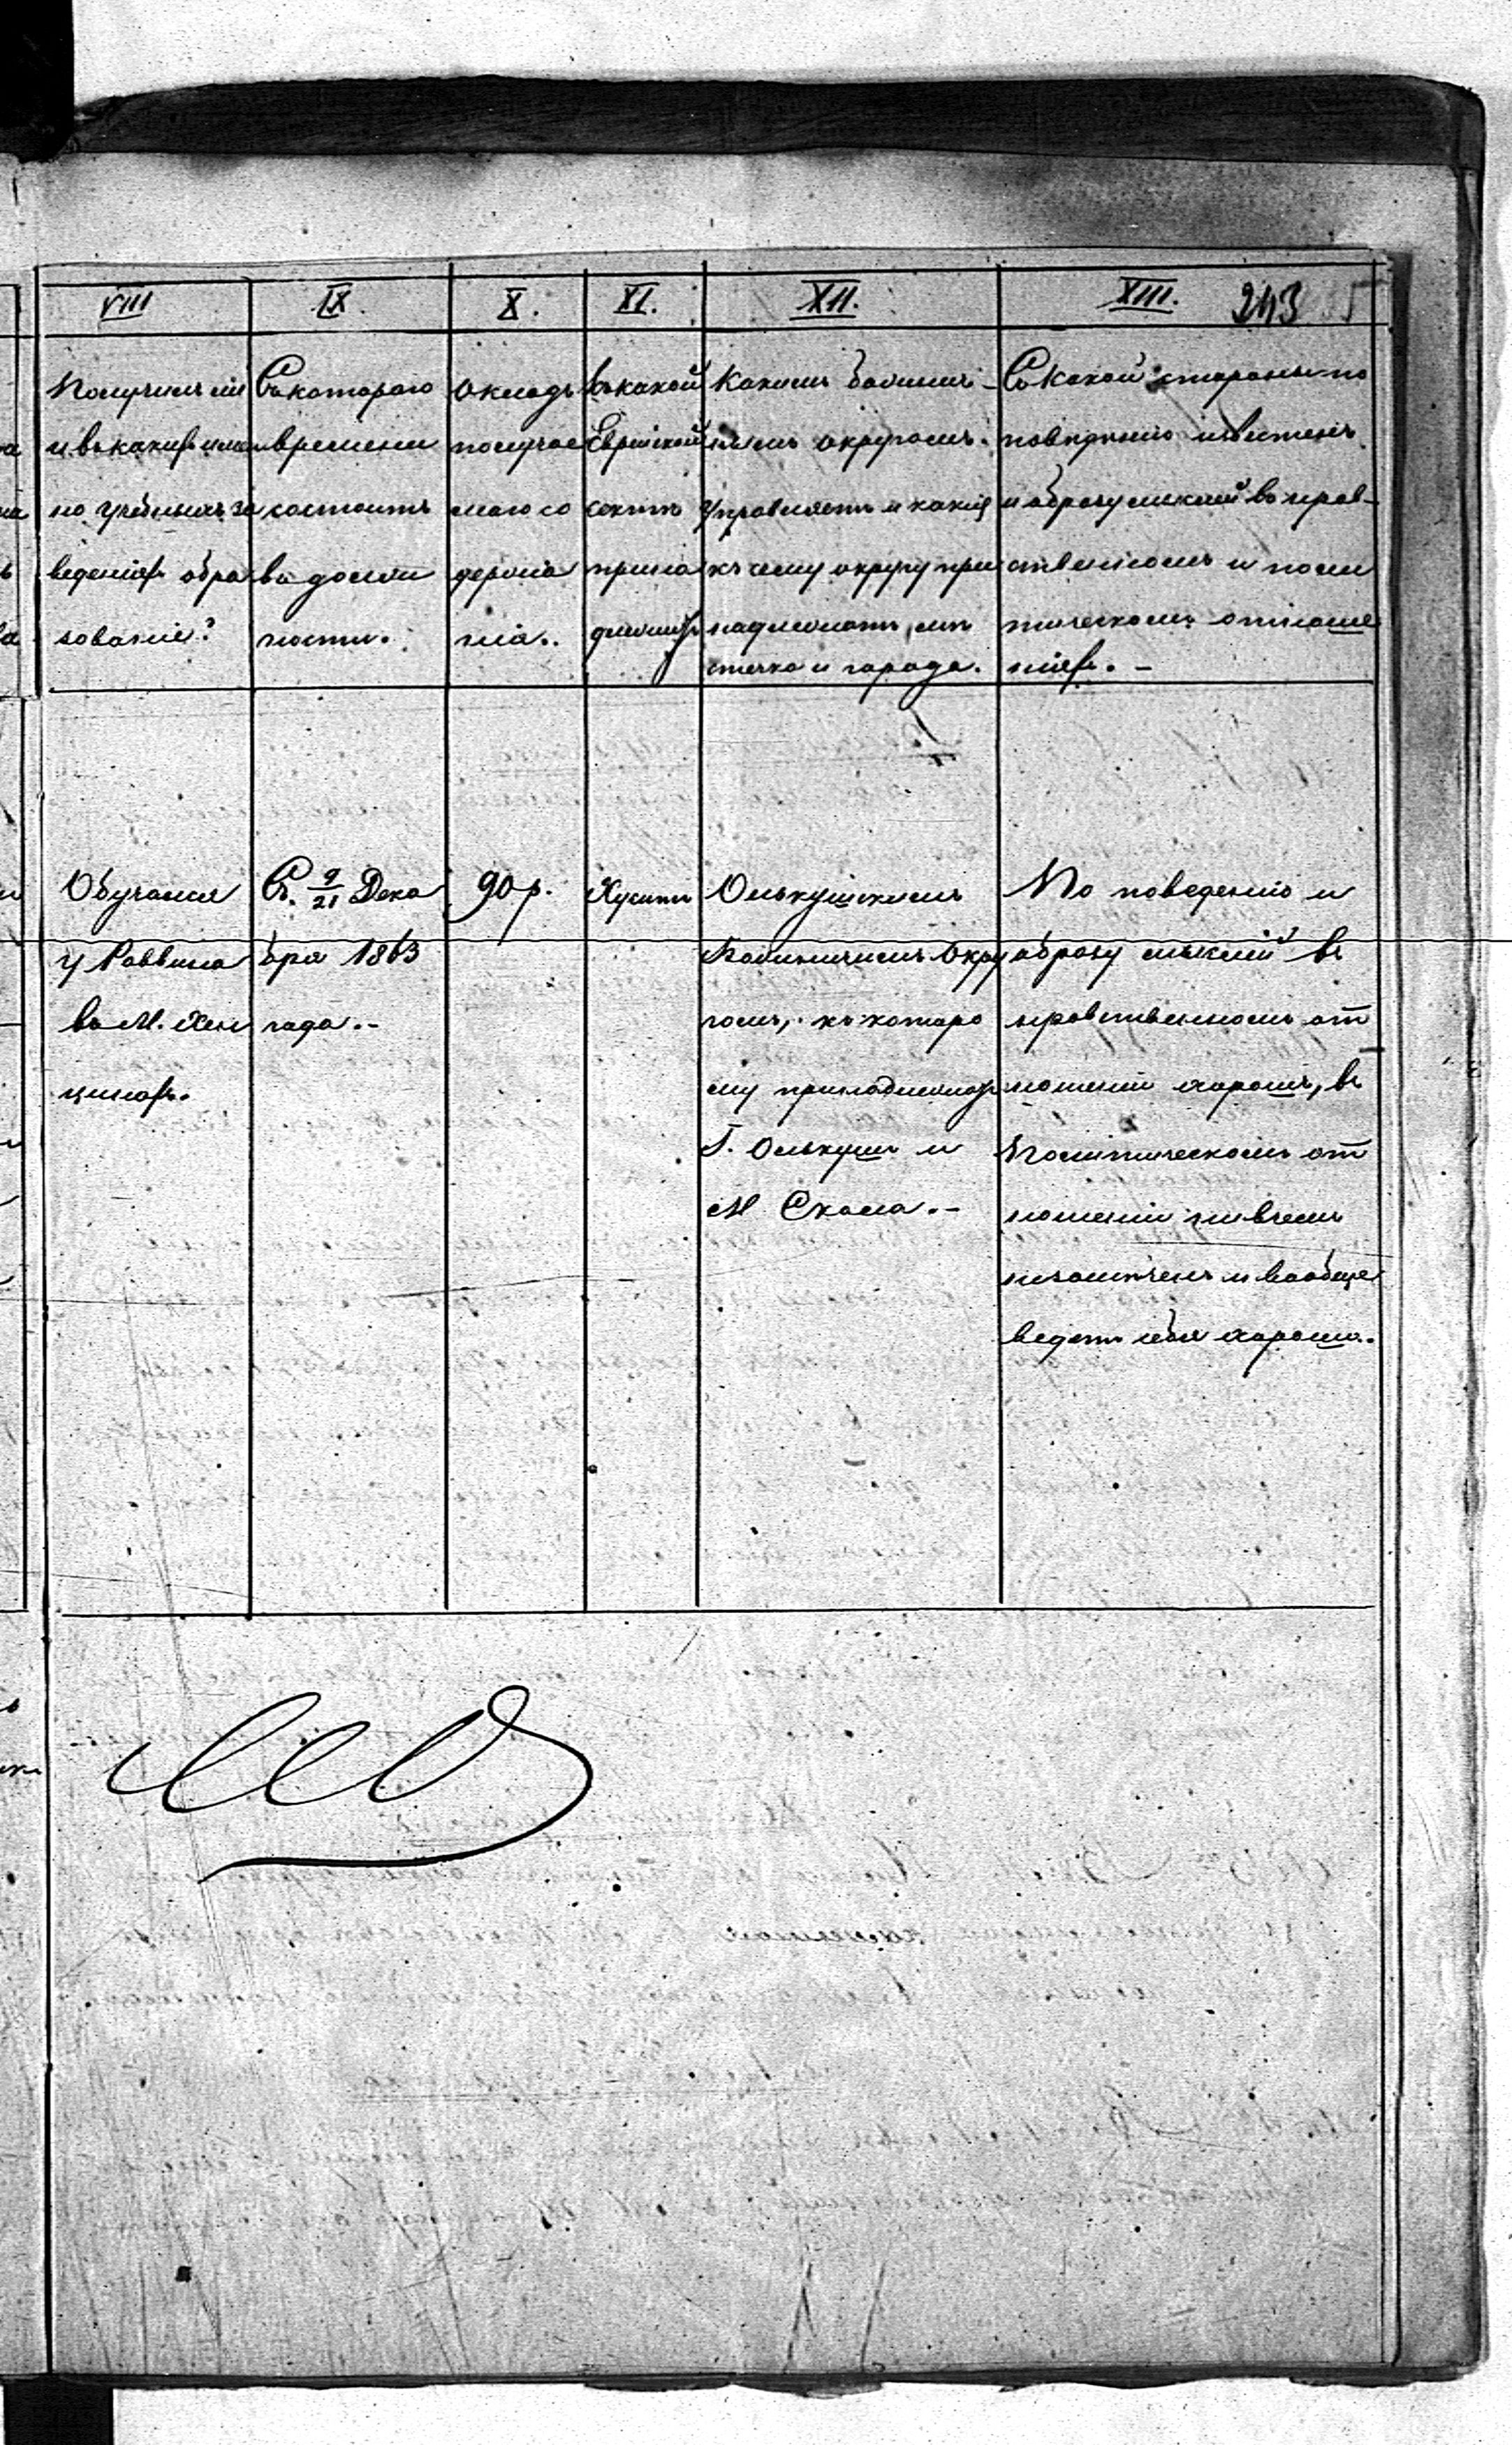 VIII
IX.
X.
XI.
XII.
XIII.
243
Получилъ ли
и въ какихъ имен
но учебныхъ за
веденіяхъ обра
зованіе?
Съ котораго
времени
состоитъ
въ долж
ности.
Окладъ
получае
маго со
держа
нія.
Къ какой
Еврейской
сектѣ
прина
длежитъ
Какимъ Божнич-
нымъ округомъ
управляетъ и какія
къ сему округу при
надлежатъ мѣ
стечка и города.
Съ какой стороны по
поведенію извѣстенъ
и образу мыслей въ нрав-
ственномъ и поли
тическомъ отноше
ніяхъ. -
Обучался
у Раввина
въ М. Хен
цинахъ.
Съ 9/21 Дека
бря 1863
года. -
90 р.
Хуситъ
Олькушскимъ
Божничнымъ Окру
гомъ, къ которо
му принадлежатъ
Г. Олькушъ и
М Скала. -
По поведенію и
образу мыслей въ
нравственномъ от
ношеніи хорошъ, въ
Политическомъ от
ношеніи ни въ чемъ
незамѣченъ и вообще
ведетъ себя хорошо.